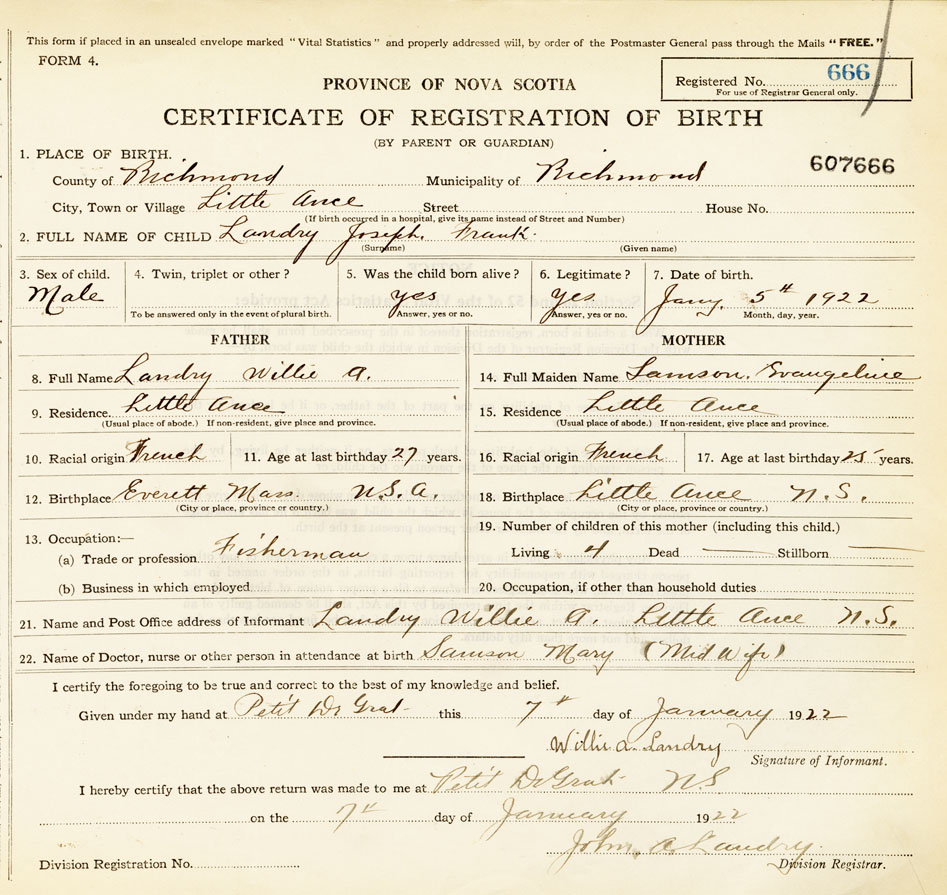 This form if placed in an unsealed envelope marked "Vital Statistics" and properly addressed will, by order of the Postmaster General pass through the Mails "FREE."
FORM 4.
Registered No. 666
For use of Registrar General only.
PROVINCE OF NOVA SCOTIA
CERTIFICATE OF REGISTRATION OF BIRTH
(BY PARENT OR GUARDIAN)
607666
1. PLACE OF BIRTH.
County of Richmond Municipality of Richmond
City, Town or Village Little Ance Street House No.
(If birth occurred in a hospital, give its name instead of Street and Number)
2. FULL NAME OF CHILD Landry Joseph. Frank.
(Surname) (Given name)
3. Sex of child. 4. Twin, triplet or other? 5. Was the child born alive? 6. Legitimate? 7. Date of birth.
Male yes yes Jany. 5th 1922
To be answered only in the event of plural birth. Answer, yes or no. Answer, yes or no. Month, day, year.
FATHER MOTHER
8. Full Name Landry Willie A. 14. Full Maiden Name Samson. Evangeline
9. Residence. Little Ance 15. Residence Little Ance
(Usual place of abode.) If non-resident, give place and province. (Usual place of abode.) If non-resident, give place and province.
10. Racial origin French 11. Age at last birthday 27 years. 16. Racial origin French 17. Age at last birthday 25 years.
12. Birthplace Everett Mass. U.S.A. 18. Birthplace Little Ance N.S.
(City or place, province or country.) (City or place, province or country.)
13. Occupation:— 19. Number of children of this mother (including this child.)
(a) Trade or profession Fisherman Living 4 Dead — Stillborn —
(b) Business in which employed 20. Occupation, if other than household duties
21. Name and Post Office address of Informant Landry Willie A. Little Ance N.S.
22. Name of Doctor, nurse or other person in attendance at birth Samson Mary (Mid Wife)
I certify the foregoing to be true and correct to the best of my knowledge and belief.
Given under my hand at Petit De Grat this 7th day of January 1922
Willie A. Landry
Signature of Informant.
I hereby certify that the above return was made to me at Petit De Grat N.S
on the 7th day of January 1922
John. A. Landry.
Division Registration No. Division Registrar.